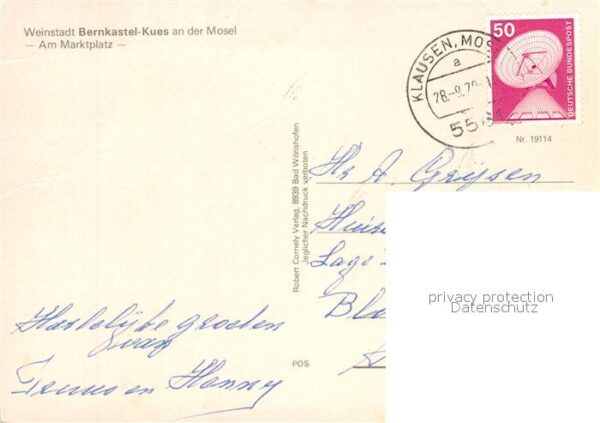 Weinstadt Bernkastel-Kues an der Mosel
— Am Marktplatz —
KLAUSEN, MOS
a
28.-9.79.-1
55
50
DEUTSCHE BUNDESPOST
Nr. 19114
Robert Cornely Verlag, 8939 Bad Wörishofen
Jeglicher Nachdruck verboten
Hr A. Grijsen
Huis
Lage
Bla
privacy protection
Datenschutz
Hartelijke groeten
van
Teunis en Hanny
POS